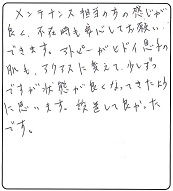 メンテナンス担当の方の感じが
良く、不在時も安心してお願い
できます。アトピーがヒドイ息子
の肌も、アクアスに変えて、少しずつ
ですが状態が良くなってきたよう
に思います。設置して良かった
です。